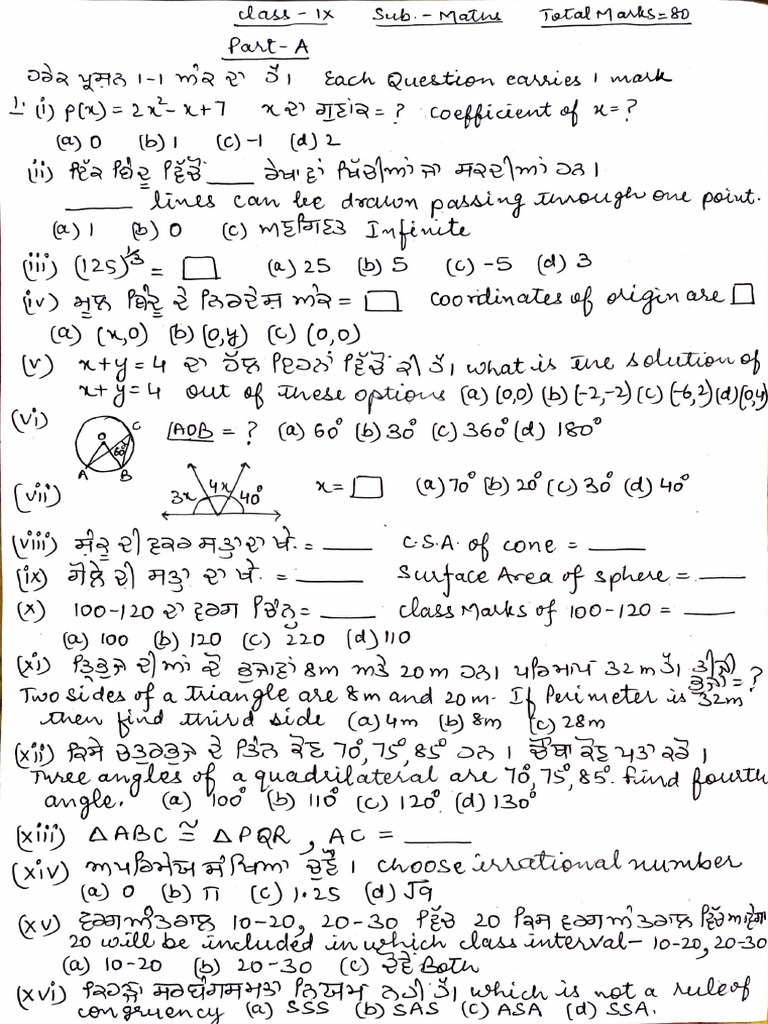 Class - IX Sub. - Maths Total Marks = 80
Part - A
ਹਰੇਕ ਪ੍ਰਸ਼ਨ 1-1 ਅੰਕ ਦਾ ਹੈ। Each Question carries 1 mark
1. (i) P(x) = 2x² - x + 7 x ਦਾ ਗੁਣਾਂਕ = ? coefficient of x = ?
(a) 0 (b) 1 (c) -1 (d) 2
(ii) ਇੱਕ ਬਿੰਦੂ ਵਿੱਚੋਂ ____ ਰੇਖਾਵਾਂ ਖਿੱਚੀਆਂ ਜਾ ਸਕਦੀਆਂ ਹਨ।
____ lines can be drawn passing through one point.
(a) 1 (b) 0 (c) ਅਣਗਿਣਤ Infinite
(iii) (125)^1/3 = □ (a) 25 (b) 5 (c) -5 (d) 3
(iv) ਮੂਲ ਬਿੰਦੂ ਦੇ ਨਿਰਦੇਸ਼ ਅੰਕ = □ coordinates of origin are □
(a) (x,0) (b) (0,y) (c) (0,0)
(v) x+y=4 ਦਾ ਹੱਲ ਇਹਨਾਂ ਵਿੱਚੋਂ ਕੀ ਹੈ। what is the solution of
x+y=4 out of these options (a) (0,0) (b) (-2,-2) (c) (-6,2) (d) (0,4)
(vi) O C 60° A B ∠AOB = ? (a) 60° (b) 30° (c) 360° (d) 180°
(vii) 3x 4x 40° x = □ (a) 70° (b) 20° (c) 30° (d) 40°
(viii) ਸ਼ੰਕੂ ਦੀ ਵਕਰ ਸਤ੍ਹਾ ਦਾ ਖੇ. = ____ C.S.A. of cone = ____
(ix) ਗੋਲੇ ਦੀ ਸਤ੍ਹਾ ਦਾ ਖੇ. = ____ Surface Area of sphere = ____
(x) 100-120 ਦਾ ਵਰਗ ਚਿੰਨ੍ਹ = ____ Class Marks of 100-120 = ____
(a) 100 (b) 120 (c) 220 (d) 110
(xi) ਤ੍ਰਿਭੁਜ ਦੀਆਂ ਦੋ ਭੁਜਾਵਾਂ 8m ਅਤੇ 20m ਹਨ। ਪਰਿਮਾਪ 32m ਹੈ। ਤੀਜੀ ਭੁਜਾ = ?
Two sides of a triangle are 8m and 20m. If Perimeter is 32m
then find third side (a) 4m (b) 8m (c) 28m
(xii) ਕਿਸੇ ਚਤੁਰਭੁਜ ਦੇ ਤਿੰਨ ਕੋਣ 70°, 75°, 85° ਹਨ। ਚੌਥਾ ਕੋਣ ਪਤਾ ਕਰੋ।
Three angles of a quadrilateral are 70°, 75°, 85°. Find fourth
angle. (a) 100° (b) 110° (c) 120° (d) 130°
(xiii) △ABC ≅ △PQR, AC = ____
(xiv) ਅਪਰਿਮੇਯ ਸੰਖਿਆ ਚੁਣੋ। choose irrational number
(a) 0 (b) π (c) 1.25 (d) √9
(xv) ਵਰਗਅੰਤਰਾਲ 10-20, 20-30 ਵਿੱਚ 20 ਕਿਸ ਵਰਗਅੰਤਰਾਲ ਵਿੱਚ ਆਵੇਗਾ
20 will be included in which class interval - 10-20, 20-30
(a) 10-20 (b) 20-30 (c) ਦੋਵੇਂ Both
(xvi) ਕਿਹੜਾ ਸਰਬੰਗਸਮਤਾ ਨਿਯਮ ਨਹੀਂ ਹੈ। which is not a rule of
congruency (a) SSS (b) SAS (c) ASA (d) SSA.